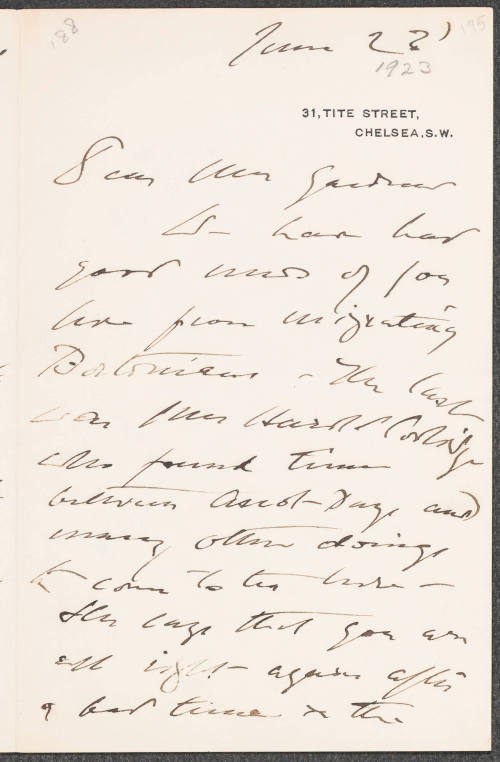 188
195
June 23
1923
31, TITE STREET,
CHELSEA, S.W.
Dear Mrs Gardner
We have had
good news of you
here from migrating
Bostonians - The last
was Mrs Harold Coolidge
who found time
between Ascot Days and
many other doings
to come to tea here -
She says that you are
all right again after
a bad time & the